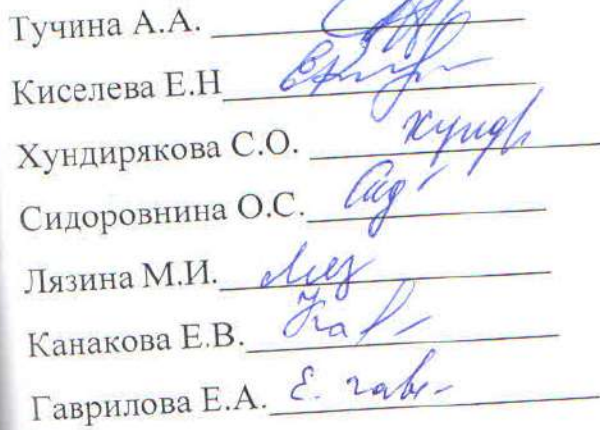 Тучина А.А.
Киселева Е.Н
Хундирякова С.О. Хунд
Сидоровнина О.С. Сид
Лязина М.И. Ляз
Канакова Е.В.
Гаврилова Е.А. Е. Гав